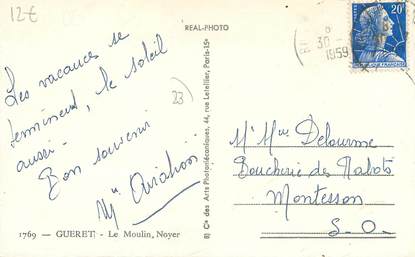 12€
REAL-PHOTO
Les vacances se
terminent, le soleil
aussi.
Bon souvenir
23
1769 - GUERET - Le Moulin, Noyer
8) Cie des Arts Photomécaniques, 44, rue Letellier, Paris-15e
8
30 -
1959
20F
Mr Mme Delourme
Boucherie des Rabots
Montesson
S.-O.-